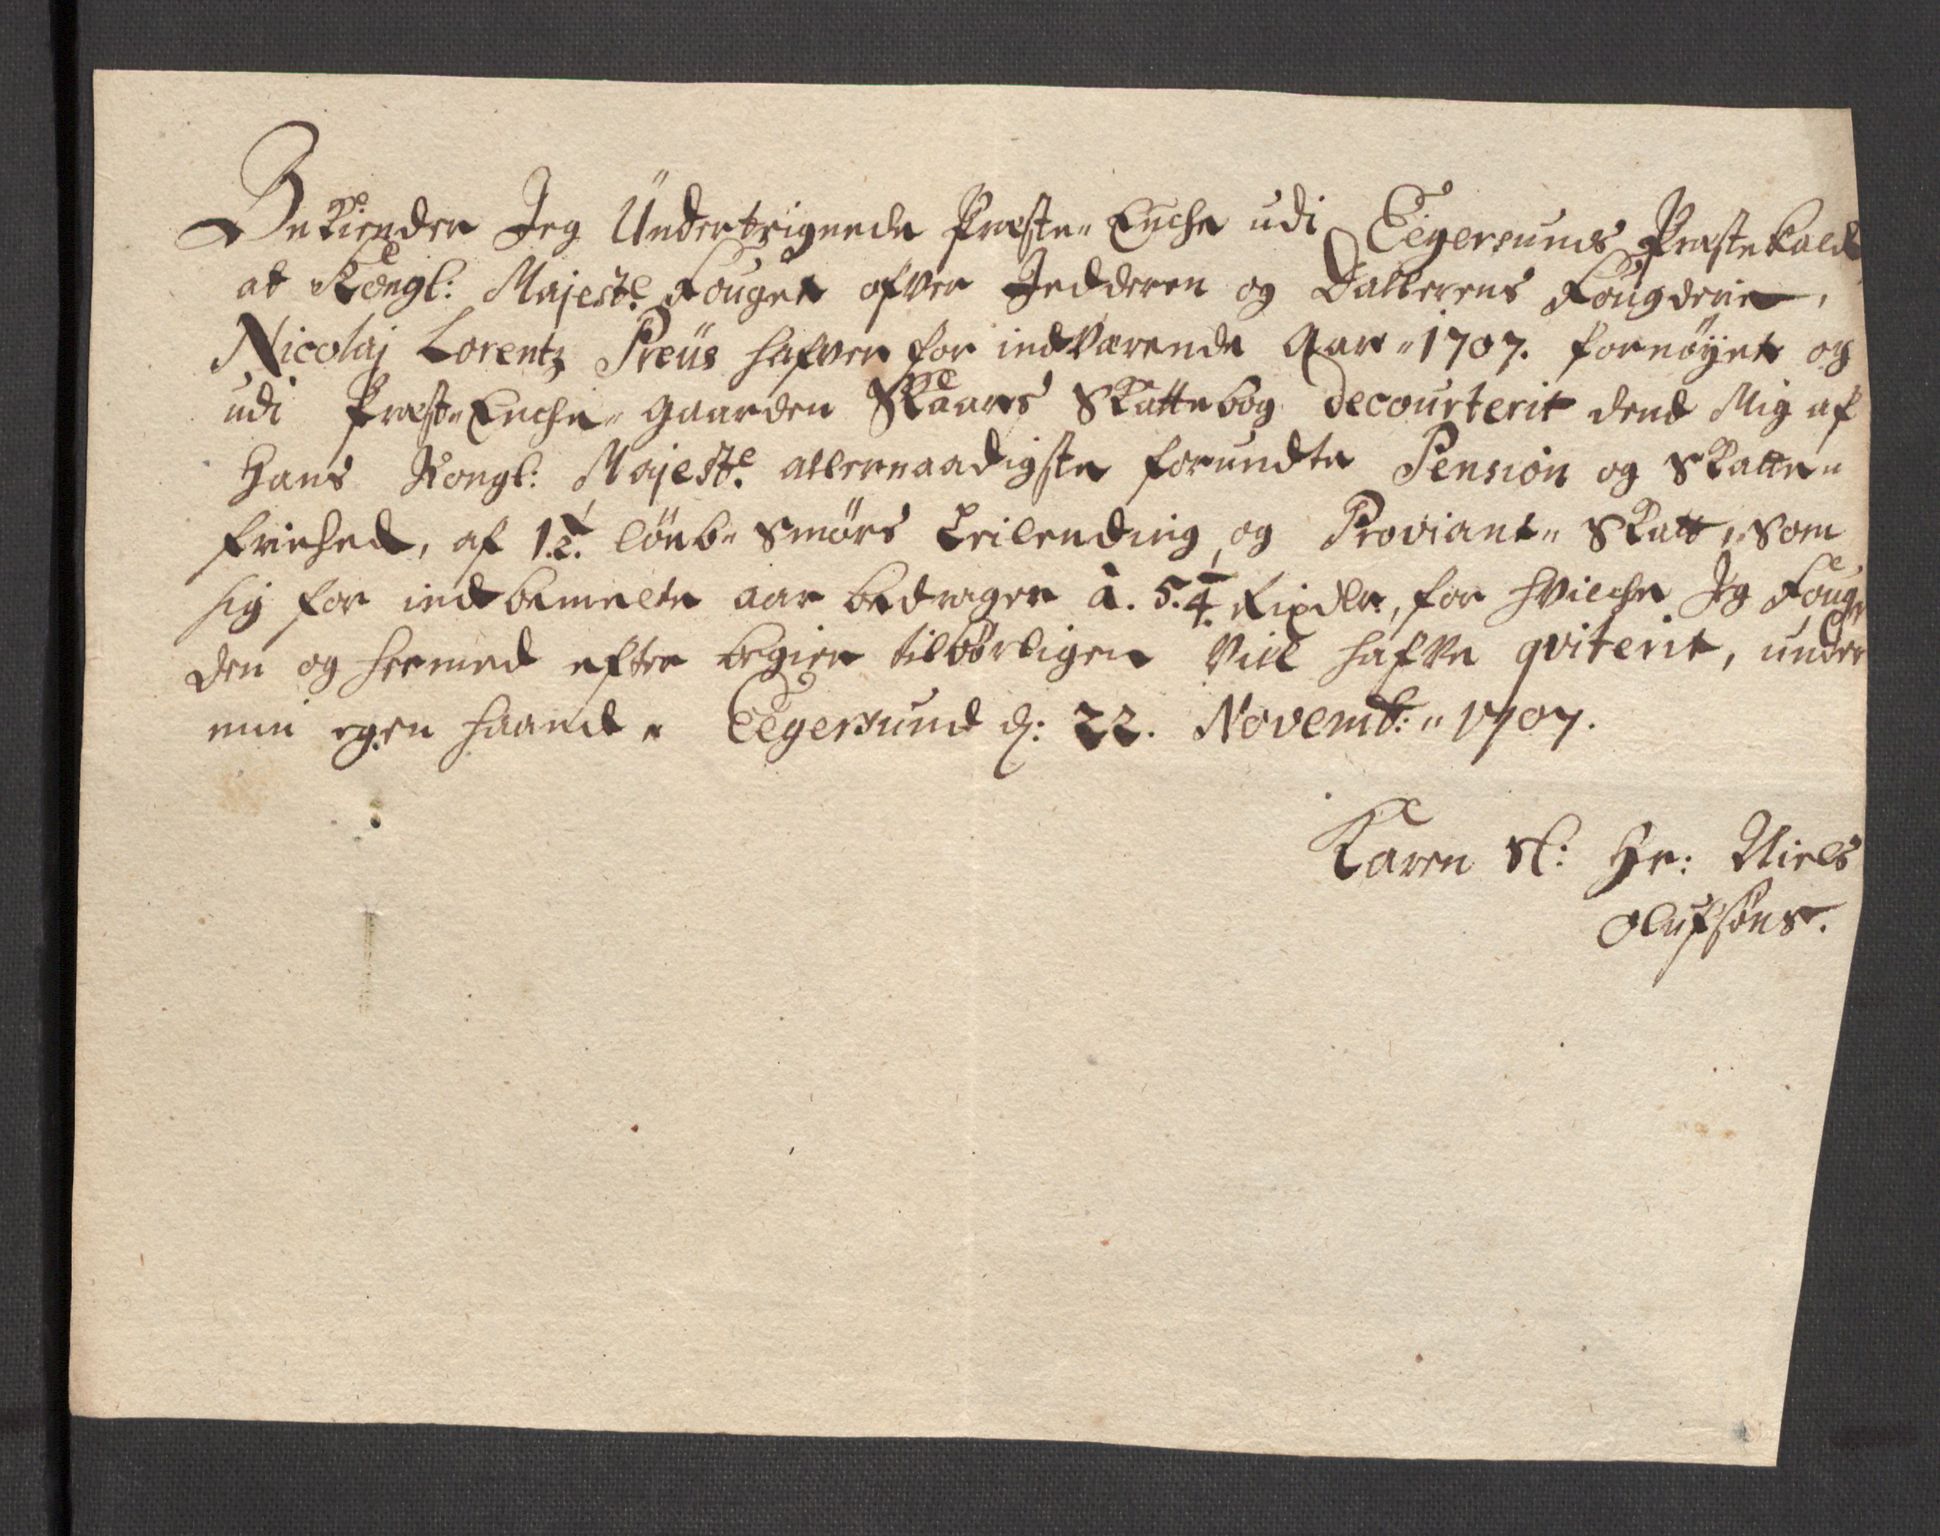 Bekiender Jeg Underteignede Præste- Enche udi Eegersunds Præstekald
at Kongl: Majestz. Fouget ofver Jedderen og Dallerens Fougderie,
Nicolaj Lorentz Preüs hafver for indværende Aar- 1707. fornöyet og
udi Præst- Enche- gaarden Skaars Skattebog decourterit dend Mig af
Hans Kongl: Majestz. allernaadigste forundte Pension og Skatte-
friehed, af 1½. löeb- Smörs Leilending og Proviant- Skatt, Som
sig for indbemelte aar bedrager à. 5.¼. Rixdlr, for hvilche Jeg Fouge
den og hermed efter begier tilbörligen vill hafve qviterit, under
min egen haand. Eegersund d: 22. Novemb:- 1707.
Karen Sl: Hr: Niels
Olufsöns.